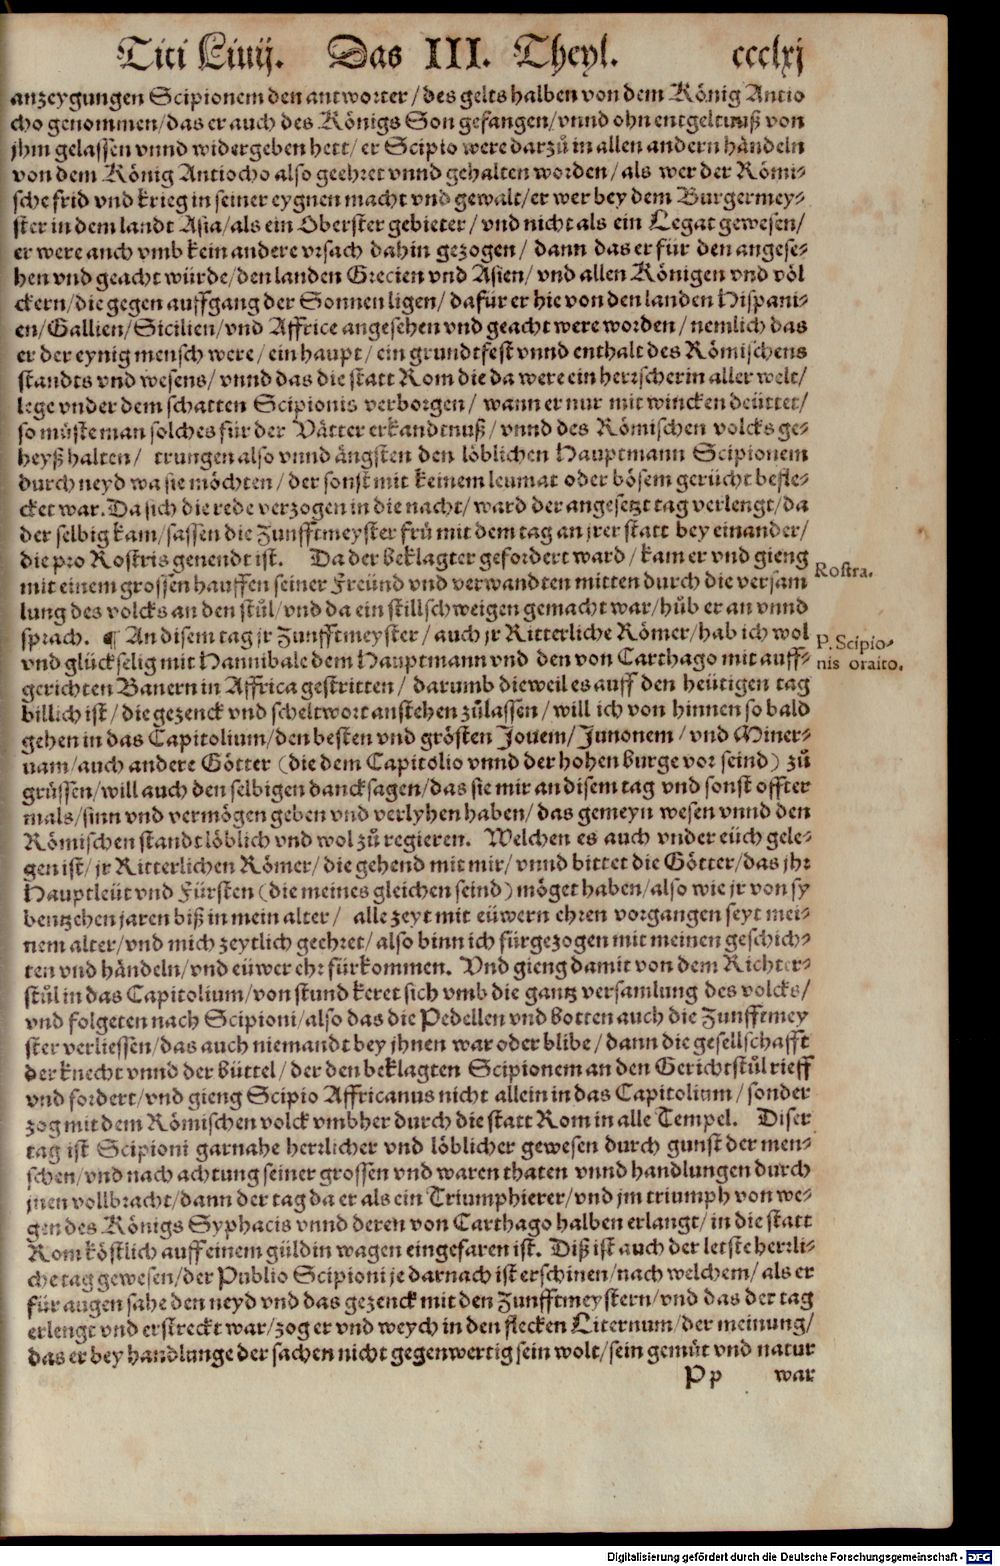 Titi Liuij. Das III. Theyl. ccclxj
anzeygungen Scipionem den antworter / des gelts halben von dem König Antio
cho genommen / das er auch des Königs Son gefangen / vnnd ohn entgeltnuß von
jhm gelassen vnnd widergeben hett / er Scipio were darzů in allen andern händeln
von dem König Antiocho also geehret vnnd gehalten worden / als wer der Römi-
sche frid vnd krieg in seiner eygnen macht vnd gewalt / er wer bey dem Burgermey-
ster in dem landt Asia / als ein Oberster gebieter / vnd nicht als ein Legat gewesen /
er were auch vmb kein andere vrsach dahin gezogen / dann das er für den angese-
hen vnd geacht würde / den landen Grecien vnd Asien / vnd allen Königen vnd völ
ckern / die gegen auffgang der Sonnen ligen / dafür er hie von den landen Hispani-
en / Gallien / Sicilien / vnd Affrice angesehen vnd geacht were worden / nemlich das
er der eynig mensch were / ein haupt / ein grundtfest vnnd enthalt des Römischens
standts vnd wesens / vnnd das die statt Rom die da were ein herrscherin aller welt /
lege vnder dem schatten Scipionis verborgen / wann er nur mit wincken deüttet /
so můste man solches für der Vätter erkandtnuß / vnnd des Römischen volcks ge-
heyß halten / trungen also vnnd ängsten den löblichen Hauptmann Scipionem
durch neyd wa sie möchten / der sonst mit keinem leumat oder bösem gerücht befle-
cket war. Da sich die rede verzogen in die nacht / ward der angesetzt tag verlengt / da
der selbig kam / sassen die Zunfftmeyster frů mit dem tag an jrer statt bey einander /
die pro Rostris genendt ist. Da der beklagter gefordert ward / kam er vnd gieng
Rostra.
mit einem grossen hauffen seiner Freünd vnd verwandten mitten durch die versam
lung des volcks an den stůl / vnd da ein stillschweigen gemacht war / hůb er an vnnd
sprach. ¶ An disem tag jr Zunfftmeyster / auch jr Ritterliche Römer / hab ich wol
P. Scipio-
vnd glückselig mit Hannibale dem Hauptmann vnd den von Carthago mit auff-
nis oraito.
gerichten Banern in Affrica gestritten / darumb dieweil es auff den heütigen tag
billich ist / die gezenck vnd scheltwort anstehen zůlassen / will ich von hinnen so bald
gehen in das Capitolium / den besten vnd grösten Jouem / Junonem / vnd Miner-
uam / auch andere Götter (die dem Capitolio vnnd der hohen burge vor seind) zů
grüssen / will auch den selbigen dancksagen / das sie mir an disem tag vnd sonst offter
mals / sinn vnd vermögen geben vnd verlyhen haben / das gemeyn wesen vnnd den
Römischen standt löblich vnd wol zů regieren. Welchen es auch vnder eüch gele-
gen ist / jr Ritterlichen Römer / die gehend mit mir / vnnd bittet die Götter / das jhr
Hauptleüt vnd Fürsten (die meines gleichen seind) möget haben / also wie jr von sy
bentzehen jaren biß in mein alter / alle zeyt mit eüwern ehren vorgangen seyt mei-
nem alter / vnd mich zeytlich geehret / also binn ich fürgezogen mit meinen geschich-
ten vnd händeln / vnd eüwer ehr fürkommen. Vnd gieng damit von dem Richter-
stůl in das Capitolium / von stund keret sich vmb die gantz versamlung des volcks /
vnd folgeten nach Scipioni / also das die Pedellen vnd botten auch die Zunfftmey
ster verliessen / das auch niemandt bey jhnen war oder blibe / dann die gesellschafft
der knecht vnnd der büttel / der den beklagten Scipionem an den Gerichtstůl rieff
vnd fordert / vnd gieng Scipio Affricanus nicht allein in das Capitolium / sonder
zog mit dem Römischen volck vmbher durch die statt Rom in alle Tempel. Diser
tag ist Scipioni garnahe herrlicher vnd löblicher gewesen durch gunst der men-
schen / vnd nach achtung seiner grossen vnd waren thaten vnnd handlungen durch
jnen vollbracht / dann der tag da er als ein Triumphierer / vnd jm triumph von we-
gen des Königs Syphacis vnnd deren von Carthago halben erlangt / in die statt
Rom köstlich auff einem güldin wagen eingefaren ist. Diß ist auch der letste herrli-
che tag gewesen / der Publio Scipioni je darnach ist erschinen / nach welchem / als er
für augen sahe den neyd vnd das gezenck mit den Zunfftmeystern / vnd das der tag
erlengt vnd erstreckt war / zog er vnd weych in den flecken Liternum / der meinung /
das er bey handlunge der sachen nicht gegenwertig sein wolt / sein gemüt vnd natur
Pp war
Digitalisierung gefördert durch die Deutsche Forschungsgemeinschaft - DFG